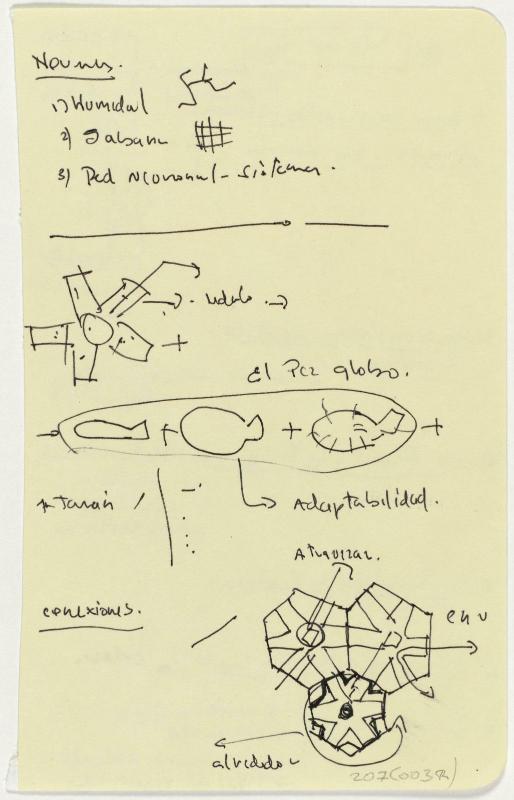 1) Humedal
2) Sabana
3) Red Neuronal - Sistemas.
El Pez globo.
Adaptabilidad.
Atravezar.
conexiones.
alrededor
207(003R)